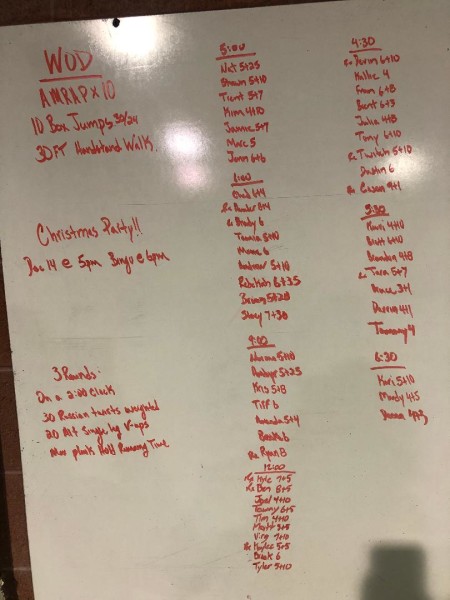 WOD
AMRAP x 10
10 Box Jumps 30/24
30 FT Handstand Walk.
Christmas Party!!
Dec 14 @ 5pm Bingo @ 6pm
3 Rounds:
On a 2:00 Clock
30 Russian twists weighted
20 Alt Single leg V-ups
Max plank Hold Running Time
5:00
Nat 5+25
Shawn 5+10
Trent 5+7
Kim 4+10
Jannie 5+7
Marc 5
John 6+6
6:00
Chad 6+4
Rx 8+4
Rx Brady 6
5+10
6
5+10
Rebekah 6+35
5+28
Stacy 7+30
9:00
5+10
5+25
Kris 5+8
Tiff 6
Amanda 5+4
6
Rx Ryan 8
12:00
Rx Kyle 7+5
Rx Ben 8+5
Joel 4+10
Tawny 6+5
Tim 4+10
Matt 5+5
Virg 7+10
Rx Kaylee 5+5
6
Tyler 5+10
4:30
Rx 6+10
Hallie 4
6+8
Brent 6+3
Julia 4+8
Tony 6+10
Rx Twitch 5+10
Dustin 6
Rx 9+1
5:30
4+10
Brett 6+10
Brandon 4+8
Rx Tara 5+7
3+1
Darrin 4+1
Tammy 4
6:30
Kari 5+10
Mindy 4+5